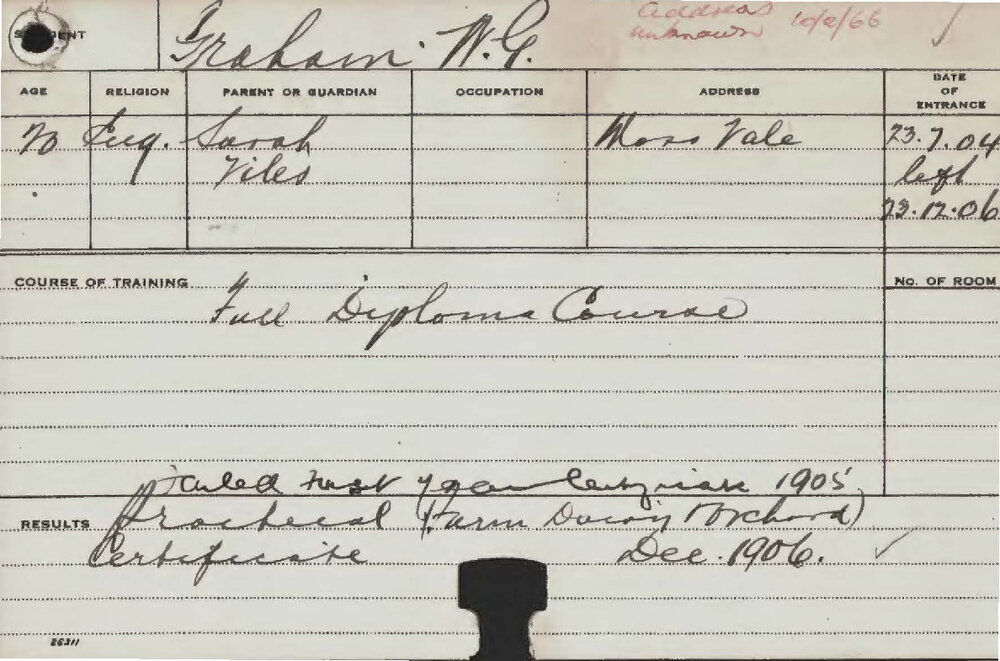 STUDENT
Graham. W.G.
address
unknown 10/2/66
AGE RELIGION PARENT OR GUARDIAN OCCUPATION ADDRESS DATE OF ENTRANCE
20 Eng. Sarah Moss Vale 23.7.04
Viles left
23.12.06
COURSE OF TRAINING No. OF ROOM
Full Diploma Course
Failed First year Certificate 1905
RESULTS Practical (Farm Dairy & Orchard)
Certificate Dec. 1906.
26311